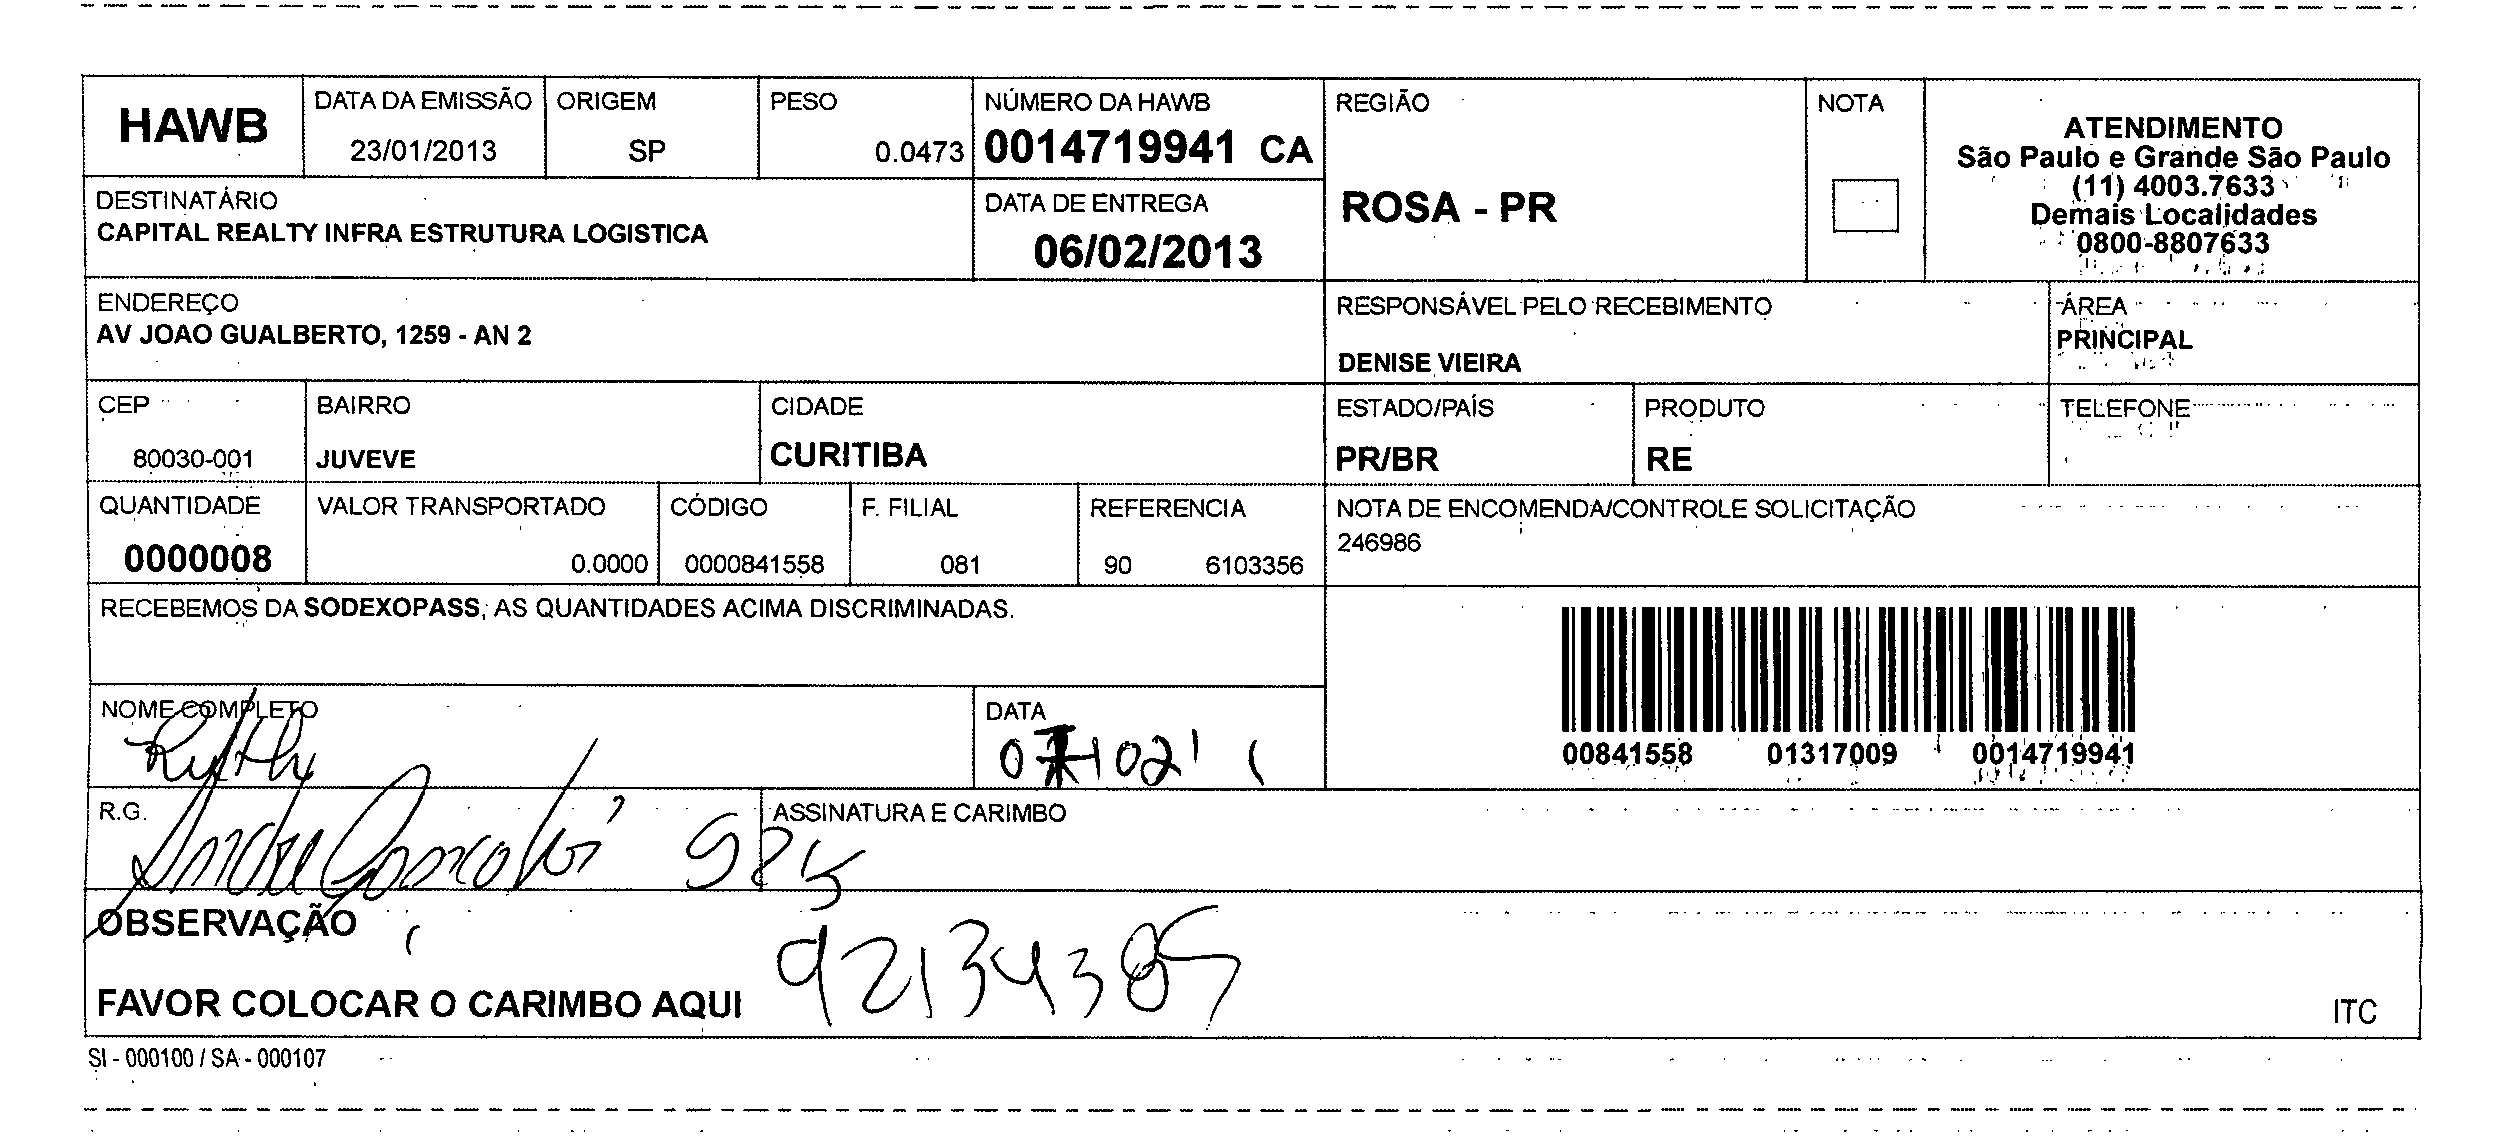 HAWB
DATA DA EMISSÃO
23/01/2013
ORIGEM
SP
PESO
0.0473
NÚMERO DA HAWB
0014719941 CA
REGIÃO
ROSA - PR
NOTA
ATENDIMENTO
São Paulo e Grande São Paulo
(11) 4003.7633
Demais Localidades
0800-8807633
DESTINATÁRIO
CAPITAL REALTY INFRA ESTRUTURA LOGISTICA
DATA DE ENTREGA
06/02/2013
ENDEREÇO
AV JOAO GUALBERTO, 1259 - AN 2
RESPONSÁVEL PELO RECEBIMENTO
DENISE VIEIRA
ÁREA
PRINCIPAL
CEP
80030-001
BAIRRO
JUVEVE
CIDADE
CURITIBA
ESTADO/PAÍS
PR/BR
PRODUTO
RE
TELEFONE
QUANTIDADE
0000008
VALOR TRANSPORTADO
0.0000
CÓDIGO
0000841558
F. FILIAL
081
REFERENCIA
90 6103356
NOTA DE ENCOMENDA/CONTROLE SOLICITAÇÃO
246986
RECEBEMOS DA SODEXOPASS, AS QUANTIDADES ACIMA DISCRIMINADAS.
00841558 01317009 0014719941
NOME COMPLETO
DATA
R.G.
ASSINATURA E CARIMBO
OBSERVAÇÃO
92134385
FAVOR COLOCAR O CARIMBO AQUI
ITC
SI - 000100 / SA - 000107